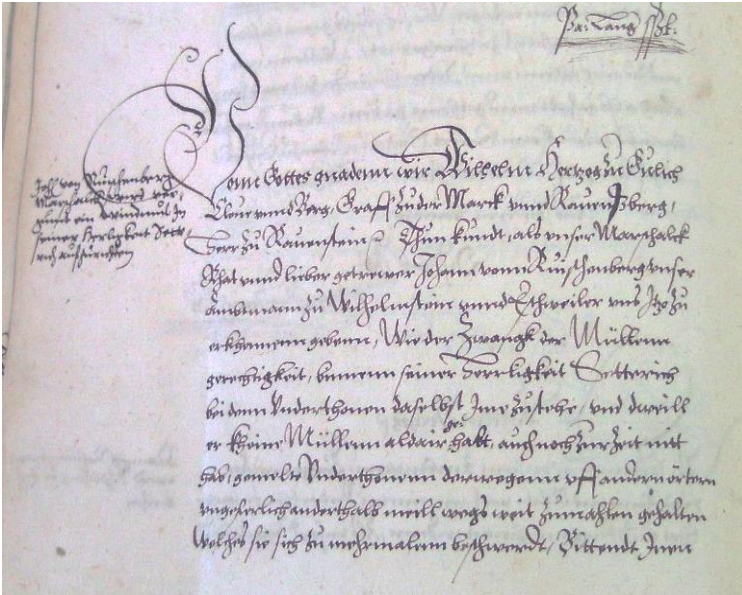 Joh: von Ruischenberg
Marschalck wird ver-
ein Windmul zu
seiner Herligkeit Sett-
rich auffzurichten
Vonn Gottes gnadenn wir Wilhelm Hertzog zu Gulich
Cleve unnd Berg, Graff zu der Marck unnd Ravenßberg,
Herr zu Ravenstein Thun kundt, als unser Marschalck
Rhat unnd lieber getrewer Johann vonn Ruischenberg unser
Ambtmann zu Wilhelmstein unnd Eschweiler uns itzo zu
erkhennenn gebenn, Wie der Zwangk der Müllenn
gerechtigkeit, binnenn seiner Herrligkeit Setterich
bei denn Underthonen daselbst Ime zustehe, und dweill
er kheine Müllenn aldair gehatt, auch noch zur Zeit nitt
hab, gemelte Underthonenn derwegenn uff andern örtern
ungeferlich anderthalb meill wegs weit zumahlen gehalten
Welches sie sich zu mehrmalenn beschwerdt, Bittendt Inen